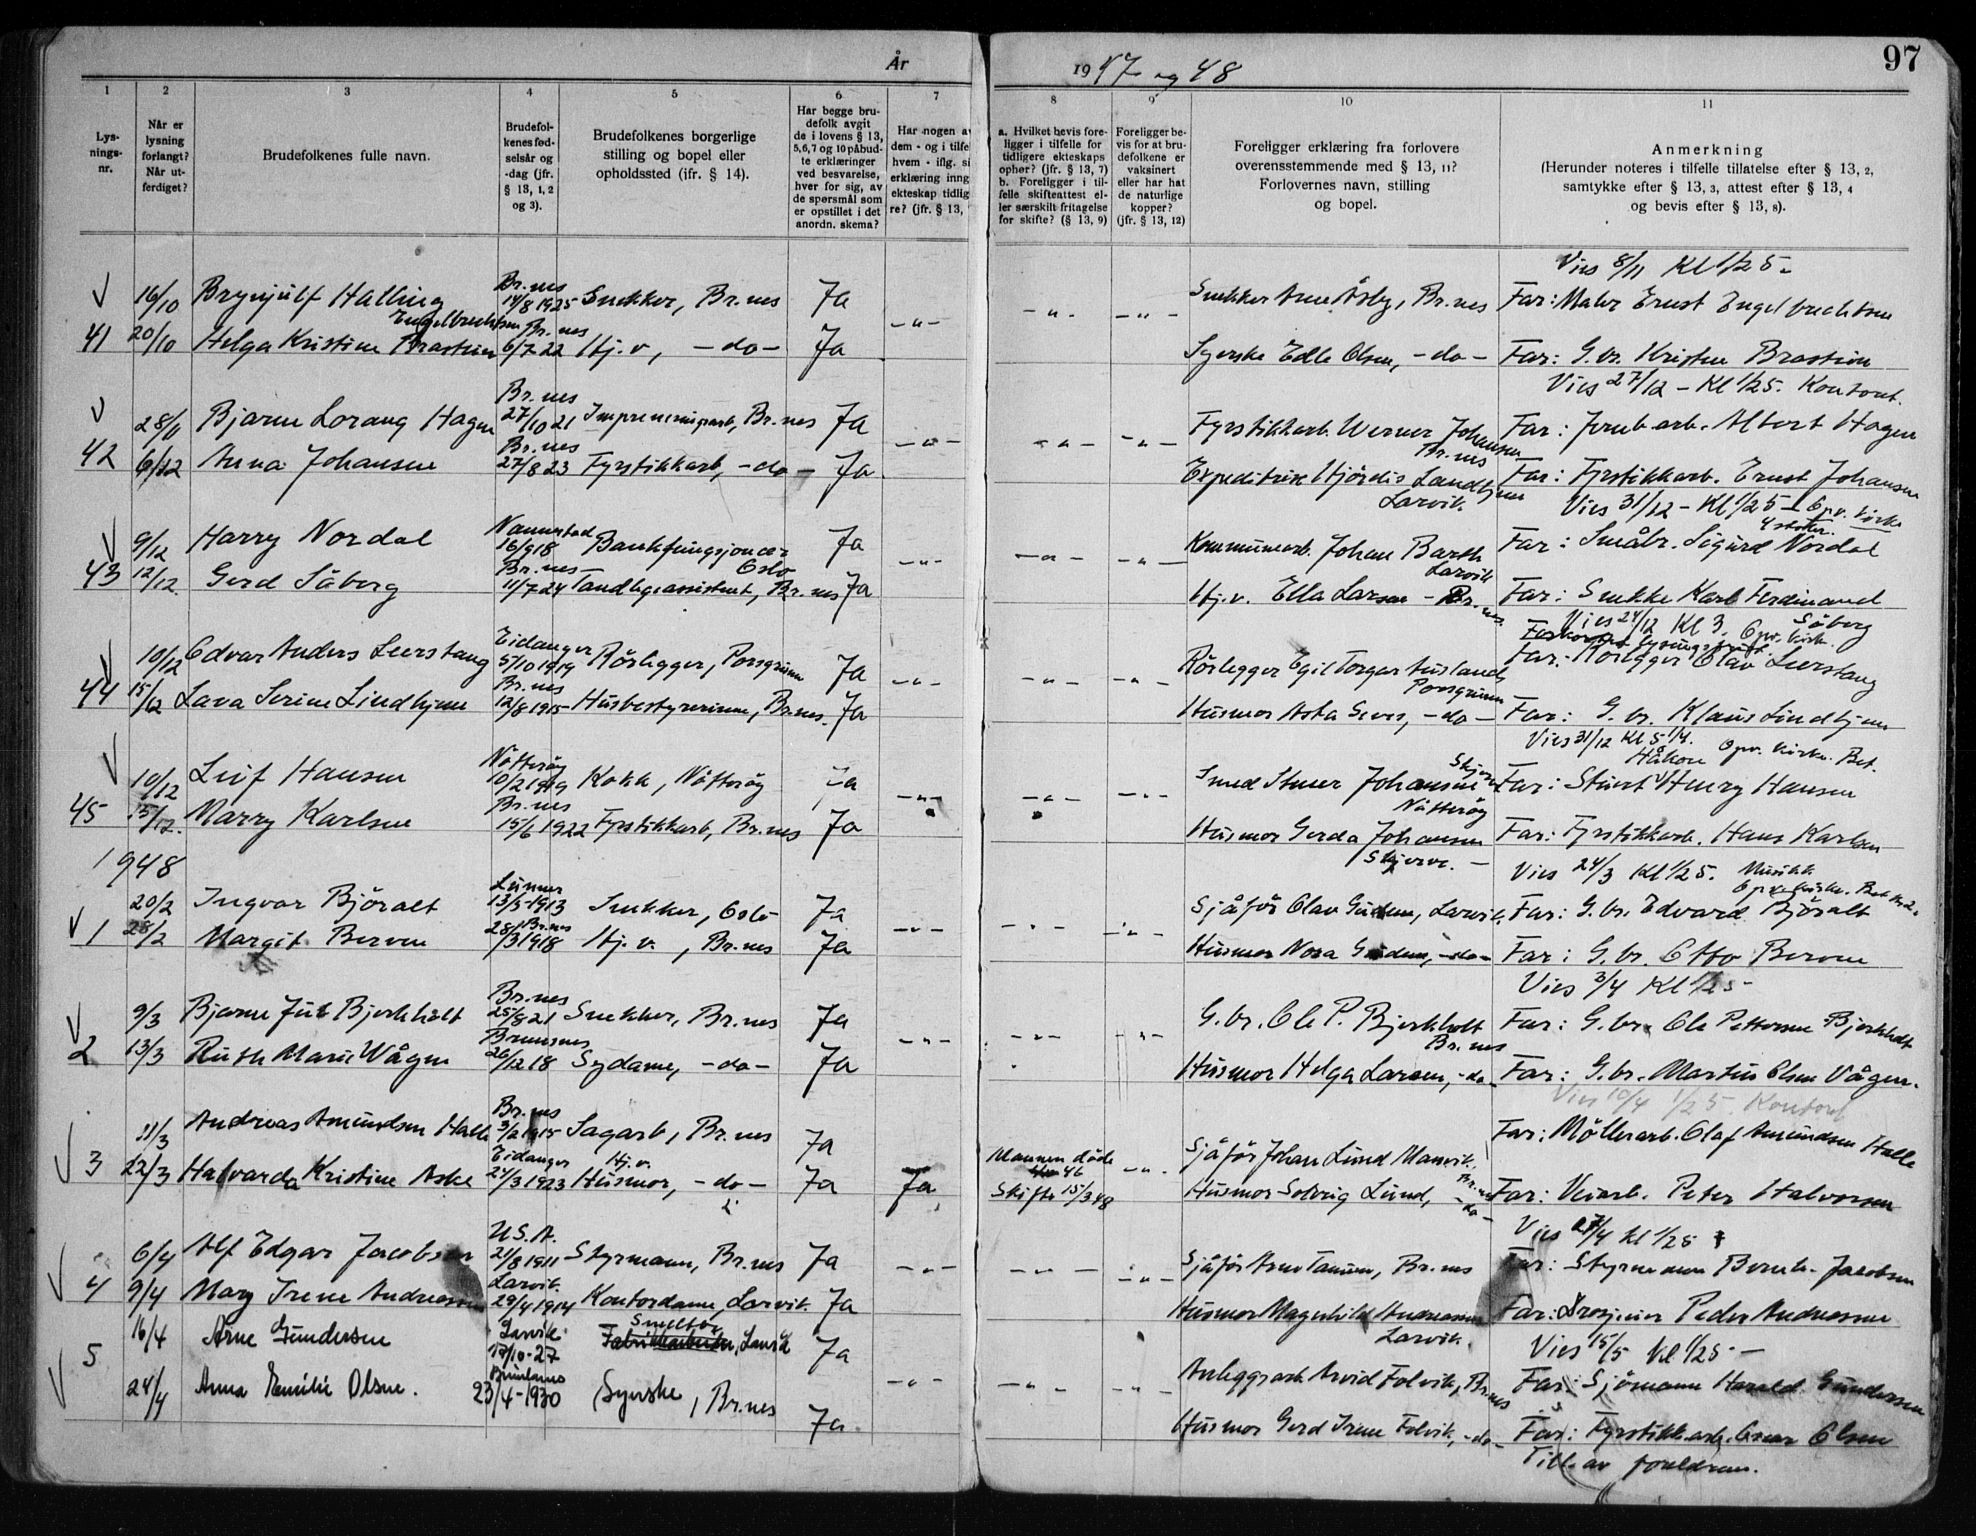 År 1947 og 48
97
1 2 3 4 5 6 7 8 9 10 11
Lys-
nings-
nr.
Når er
lysning
forlangt?
Når ut-
ferdiget?
Brudefolkenes fulle navn.
Brudefol-
kenes fød-
selsår og
-dag (jfr.
§ 13, 1, 2
og 3).
Brudefolkenes borgerlige
stilling og bopel eller
opholdssted (ifr. § 14).
Har begge bru-
defolk avgit
de i lovens § 13,
5,6,7 og 10 påbud-
te erklæringer
ved besvarelse,
hver for sig, av
de spørsmål som
er opstillet i det
anordn. skema?
Har nogen av
dem - og i tilfe
hvem - iflg. si
erklæring inng
ekteskap tidlig
re? (jfr. § 13,
a. Hvilket bevis fore-
ligger i tilfelle for
tidligere ekteskaps
ophør? (jfr. § 13, 7)
b. Foreligger i til-
felle skifteattest el-
ler særskilt fritagelse
for skifte? (§ 13, 9)
Foreligger be-
vis for at bru-
defolkene er
vaksinert
eller har hat
de naturlige
kopper?
(jfr. § 13, 12)
Foreligger erklæring fra forlovere
overensstemmende med § 13, 11?
Forlovernes navn, stilling
og bopel.
Anmerkning
(Herunder noteres i tilfelle tillatelse efter § 13, 2,
samtykke efter § 13, 3, attest efter § 13, 4
og bevis efter § 13, 8).
Vies 8/11 Kl 1/2 5.
Br.nes
16/10 Brynjulf Halling 14/8 1925 Snekker, Br.nes Ja Snekker Arne Åsby, Br.nes Far: Maler Ernst Engelbrechtsen
Engelbrechtsen Br.nes
41 20/10 Helga Kristine Brastein 6/7 22 Hj.v, - do - Ja - " - - " - - " - Syerske Edle Olsen, - do - Far: G.br. Kristen Brastein
Vies 27/12 - Kl 1/2 5. Kontoret.
Br.nes
28/11 Bjarne Lorang Hagen 27/10 21 Impregneringsarb, Br.nes Ja Fyrstikkarb. Werner Johansen Far: Jernb.arb. Albert Hagen
Br.nes Br.nes
42 6/12 Anna Johansen 27/8 23 Fyrstikkarb, - do - Ja - " - - " - - " - Expeditrise Hjördis Lindhjem Far: Fyrstikkarb. Ernst Johansen
Larvik. Vies 31/12 - Kl 1/2 5 - Opv. kirke
Nannestad
9/12 Harry Nordal 16/9 18 Bankfungsjonær Ja Kommunearb. Johan Barth Far: Småbr. Sigurd Nordal
Br.nes Oslo Larvik
43 12/12. Gerd Söberg 11/7 24 Tandlegeassistent, Br.nes Ja - " - - " - - " - Hj.v. Ella Larsen - Br.nes Far: Snekke Karl Ferdinand
Söberg
Vies 24/12 Kl 3. Opv. kirk.
Eidanger
10/12 Edvar Anders Leerstang 5/10 1919 Rörlegger, Porsgrunn Ja Rörlegger Egil Torgar Ausland Far: Rörlegger Olav Leerstang
Br.nes Porsgrunn
44 15/12 Lava Serine Lindhjem 12/8 1915 Husbestyrerinne, Br.nes. Ja - " - - " - - " - Husmor Asta Sives, - do - Far: G.br. Klaus Lindhjem
Vies 31/12 Kl 5 1/4. Opv. kirke. Bet.
Håkon
Nötteröy
10/12 Leif Hansen 10/2 1919 Kokk, Nötteröy Ja Smed Stener Johansen Far: Stuert Henry Hansen
Br.nes Nötteröy
45 15/12. Marry Karlsen 15/6 1922 Fyrstikkarb, Br.nes Ja - " - - " - - " - Husmor Gerda Johansen Far: Fyrstikkarb. Hans Karlsen
Skjerve. -
1948
Vies 24/3 Kl 1/2 5. Musikk
Lunner
20/2 Ingvar Björalt 13/5-1913 Snekker, Oslo Ja Sjåför Olav Gudem, Larvik. Far: G.br. Edvard Björalt
Br.nes
1 28/2 Margit Berven 28/3 1918 Hj.v., Br.nes Ja - " - - " - - " - Husmor Nora Gudem, - do - Far: G.br. Otto Berven
Vies 3/4 Kl 1/2 5 -
Br.nes
9/3 Bjarne Jul Bjerkholt 25/8 21 Snekker, Br.nes Ja G.br. Ole P. Bjerkholt Far: G.br. Ole Pettersen Bjerkholt
Brunnes Br.nes
2 13/3 Ruth Marie Vågen 26/12 18 Sydame, - do - Ja - " - - " - - " - Husmor Helga Larsen, - do - Far: G.br. Martin Olsen Vågen.
Vies 10/4 1/2 5. Kontoret
Br.nes
11/3 Andreas Amundsen Halle 3/2 1915 Sagarb, Br.nes Ja Mannen döde 46 Sjåför Johan Lund Manvik. Far: Möllerarb. Olaf Amundsen Halle
Eidanger Hj.v. Br.nes
3 22/3 Halvarda Kristine Aske 24/3 1923 Husmor, - do - Ja Ja Skifte 15/3 48 - " - Husmor Solveig Lund, - do - Far: Veiarb. Peter Halvorsen
Vies 17/4 Kl 1/2 5
U.S.A.
6/4 Alf Edgar Jacobsen 21/8 1911 Styrmann, Br.nes Ja Sjåför Arne Tanum, Br.nes Far: Styrmann Bernh. Jacobsen
Larvik.
4 9/4 Mary Irene Andreassen 29/4 1914 Kontordame, Larvik. Ja - " - - " - - " - Husmor Magnhild Andreassen Far: Drosjeeier Peder Andreassen
Larvik.
Vies 15/5 kl 1/2 5 -
Larvik Snelför
16/4 Arne Gundersen 17/10-27 Fabrikkarbeider, Larvik Ja Anleggsarb. Arvid Folvik, Br.nes Far: Sjömann Harald Gundersen
5 Brunlanes
24/4 Anna Emilie Olsen. 23/4-1930 Syerske, Br.nes Ja - " - - " - - " - Husmor Gerd Irene Folvik, - do - Far: Fyrstikkarb. Einar Olsen
Till. av foreldrene.